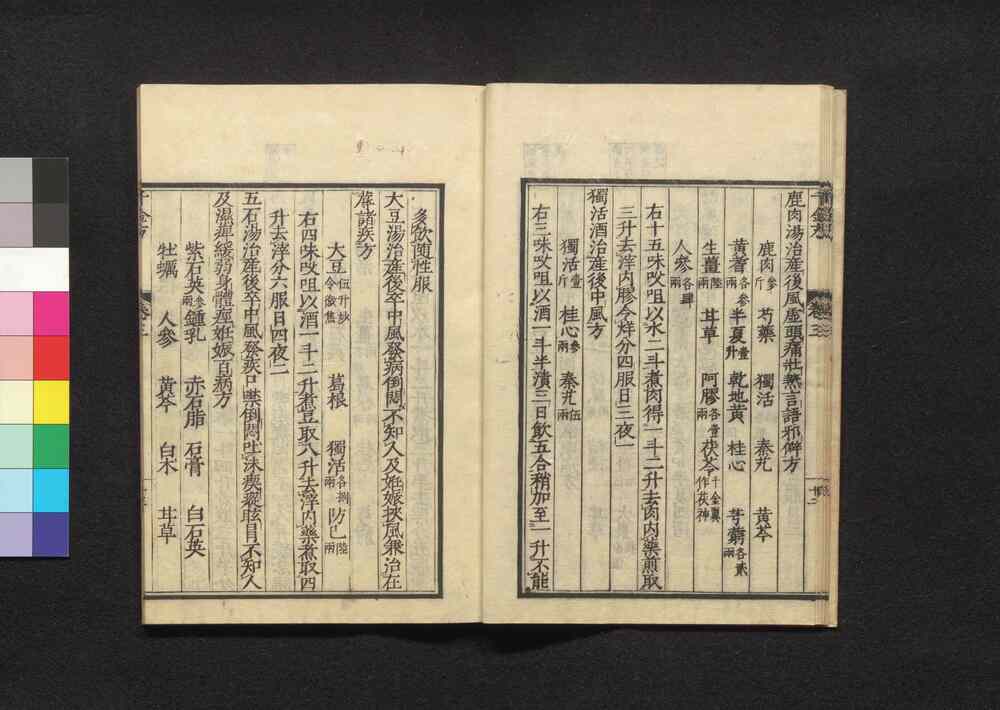 鹿肉湯治産後風虛頭痛壯熱言語邪僻方
鹿肉參斤 芍藥 獨活 秦艽 黃芩
黃蓍各參兩 半夏壹升 乾地黃 桂心 芎藭各貳兩
生薑陸兩 甘草 阿膠各壹兩 茯苓千金翼作茯神
人參各肆兩
右十五味㕮咀以水二斗煮肉得一斗二升去肉內藥煎取
三升去滓內膠令烊分四服日三夜一
獨活酒治産後中風方
獨活壹斤 桂心參兩 秦艽伍兩
右三味㕮咀以酒一斗半漬三日飲五合稍加至一升不能
千金方
卷三
多飲隨性服
大豆湯治産後卒中風發病倒悶不知人及妊娠挾風兼治在
蓐諸疾方
大豆伍升炒令微焦 葛根 獨活各捌兩 防己陸兩
右四味㕮咀以酒一斗二升煮豆取八升去滓內藥煮取四
升去滓分六服日四夜二
五石湯治産後卒中風發疾口噤倒悶吐沫瘈瘲眩冒不知人
及濕痺緩弱身體痙妊娠百病方
紫石英參兩 鍾乳 赤石脂 石膏 白石英
牡蠣 人參 黃芩 白朮 甘草
千金方
卷三